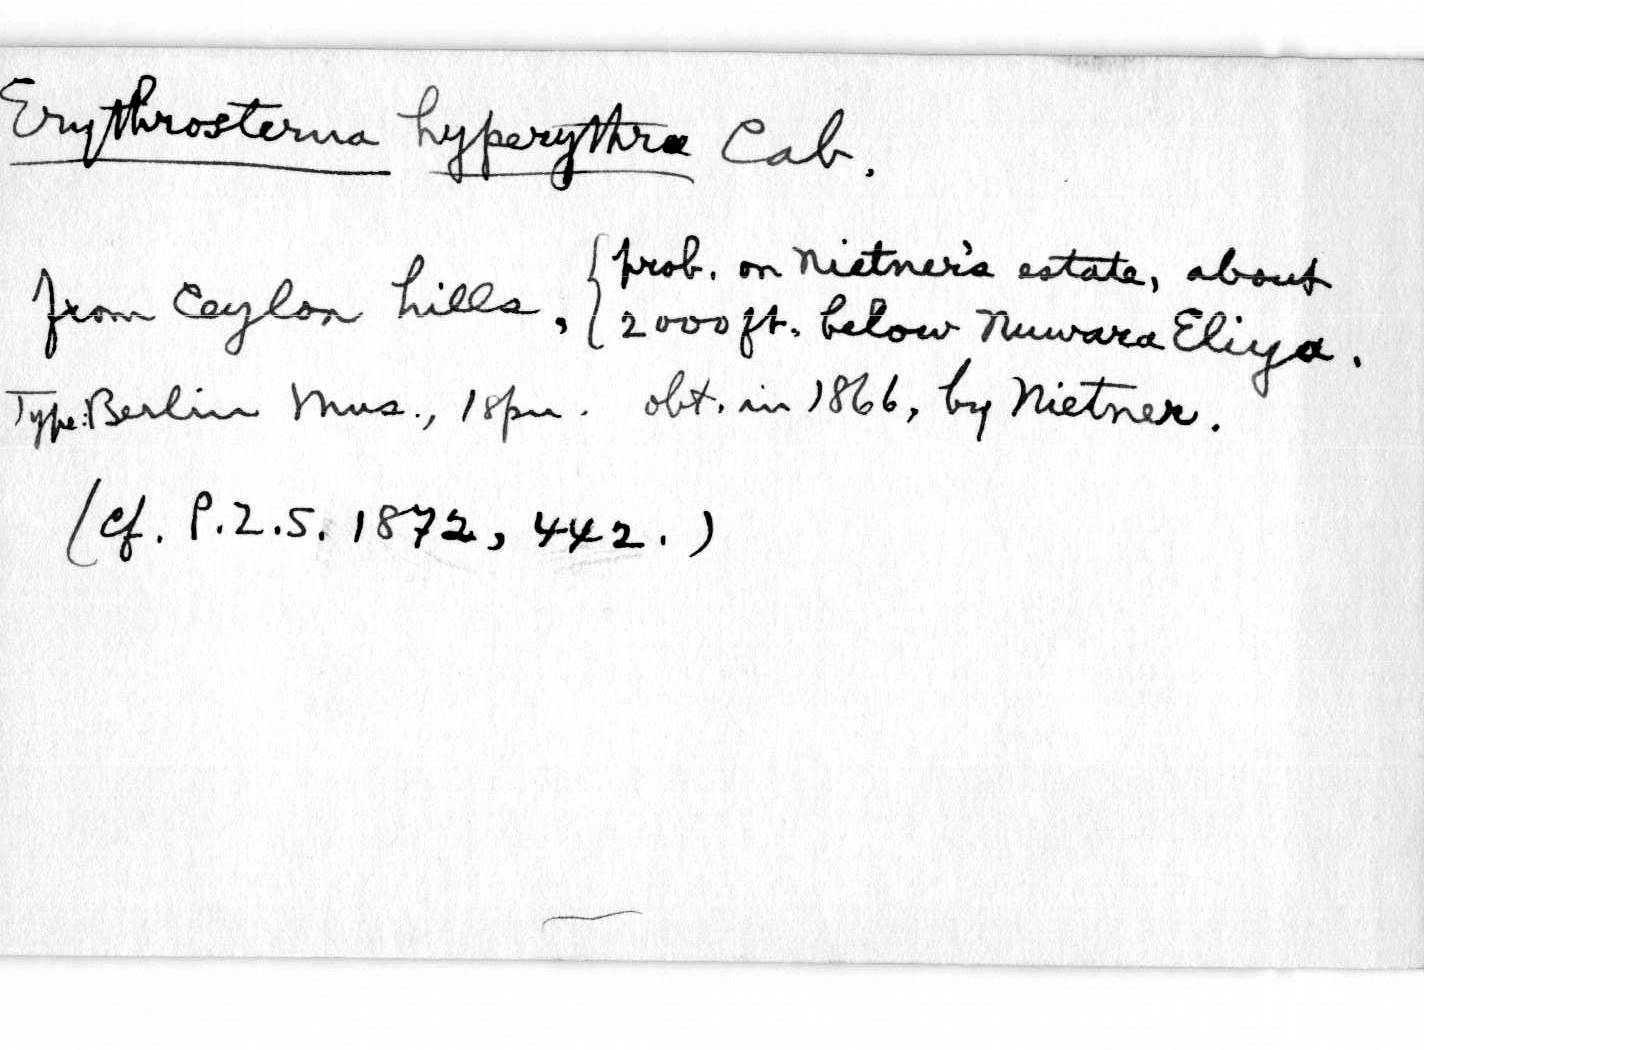 Erythrosterna hyperythra Cab.
from Ceylon hills, { prob. on Nietner's estate, about
2000 ft. below Nuwara Eliya.
Type: Berlin Mus., 1 spn. obt. in 1866, by Nietner.
(cf. P.Z.S. 1872, 442.)